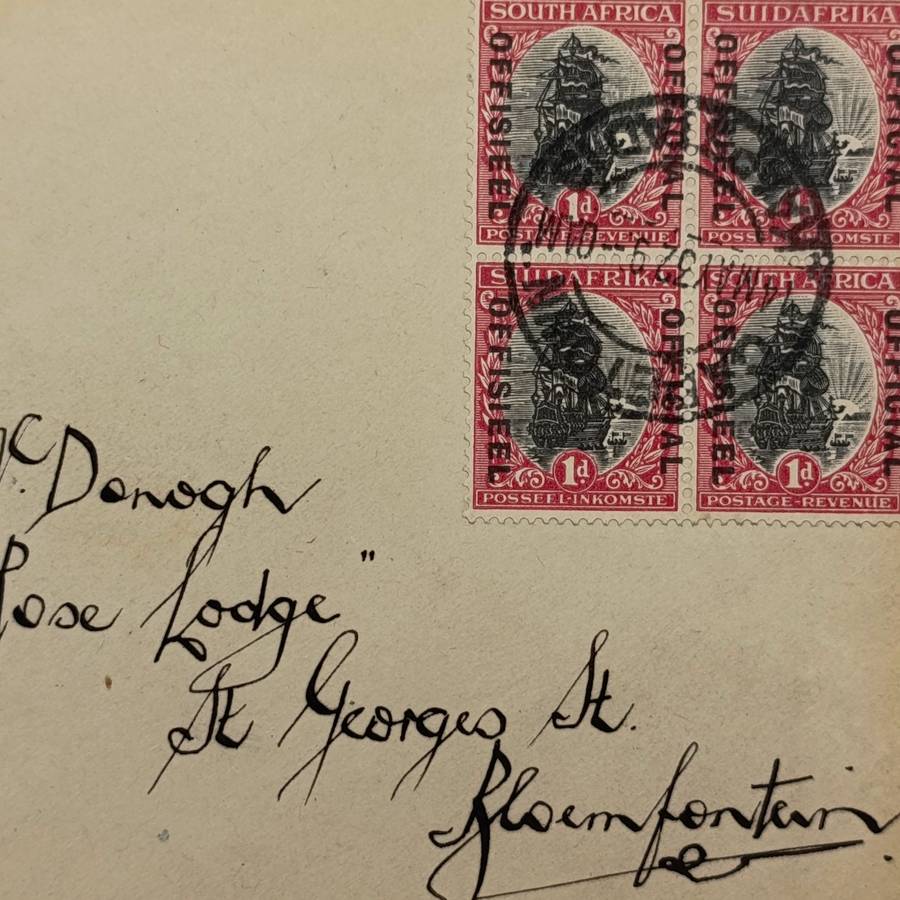 SOUTH AFRICA SUIDAFRIKA
OFFISIEEL OFFICIAL OFFISIEEL OFFICIAL
1d 1d
POSTAGE-REVENUE POSSEEL-INKOMSTE
SUIDAFRIKA SOUTH AFRICA
OFFISIEEL OFFICIAL OFFISIEEL OFFICIAL
1d 1d
POSSEEL-INKOMSTE POSTAGE-REVENUE
McDonogh
Rose Lodge"
St Georges St.
Bloemfontein.